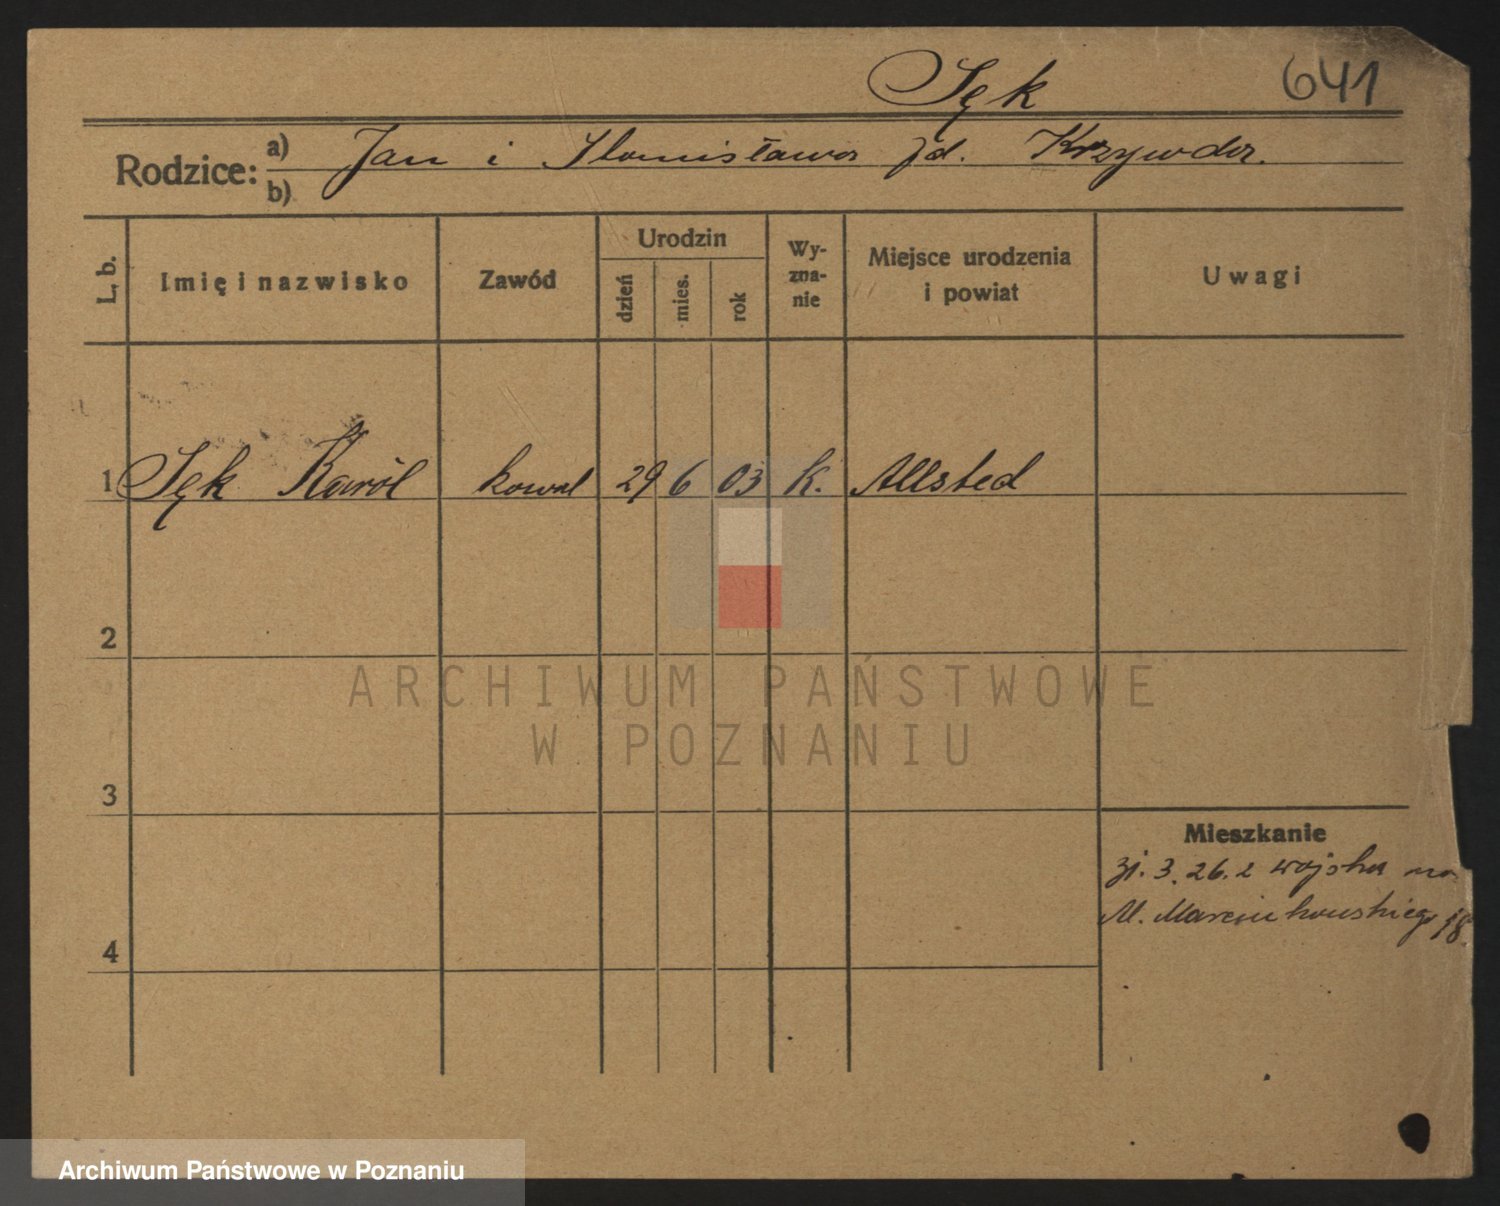 Sęk 641
Rodzice: a) Jan i Stanisława zd. Krzywda.
b)
L. b. Imię i nazwisko Zawód Urodzin dzień mies. rok Wy-zna-nie Miejsce urodzenia i powiat Uwagi
1 Sęk Karól kowal 29 6 03 k. Allsted
2
3
4
Mieszkanie
3. 26. z wojska na
M. Marcinkowskiego 18
ARCHIWUM PAŃSTWOWE
W POZNANIU
Archiwum Państwowe w Poznaniu